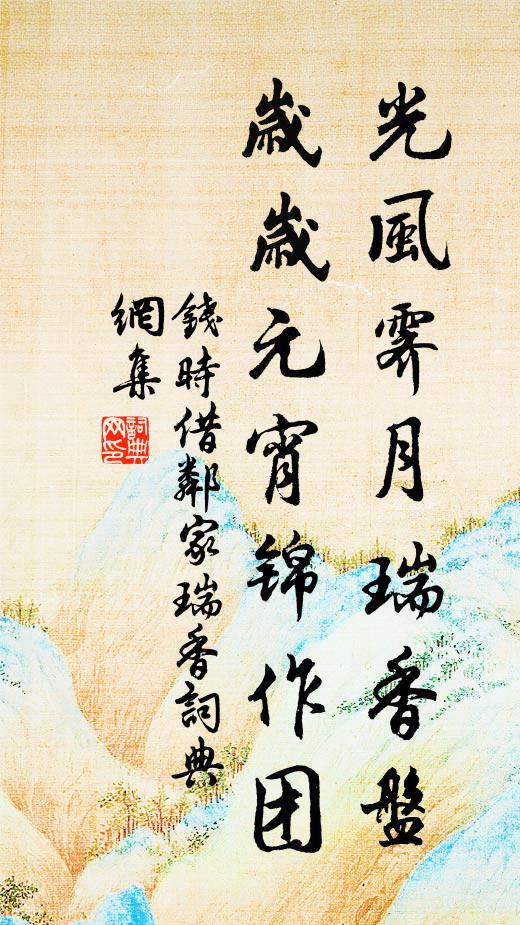 光風霽月瑞香盤
歲歲元宵錦作团
錢時借鄰家瑞香詞典
網集
詞典
网印